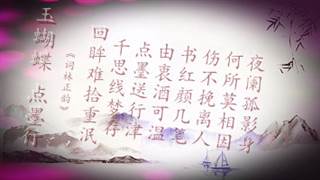 玉蝴蝶 点墨行
《词林正韵》
回眸难拾重泯
千思线梦存
点墨送行津
由衷酒可温
书红颜几笔
伤不挽离人
何所莫相因
夜阑孤影身